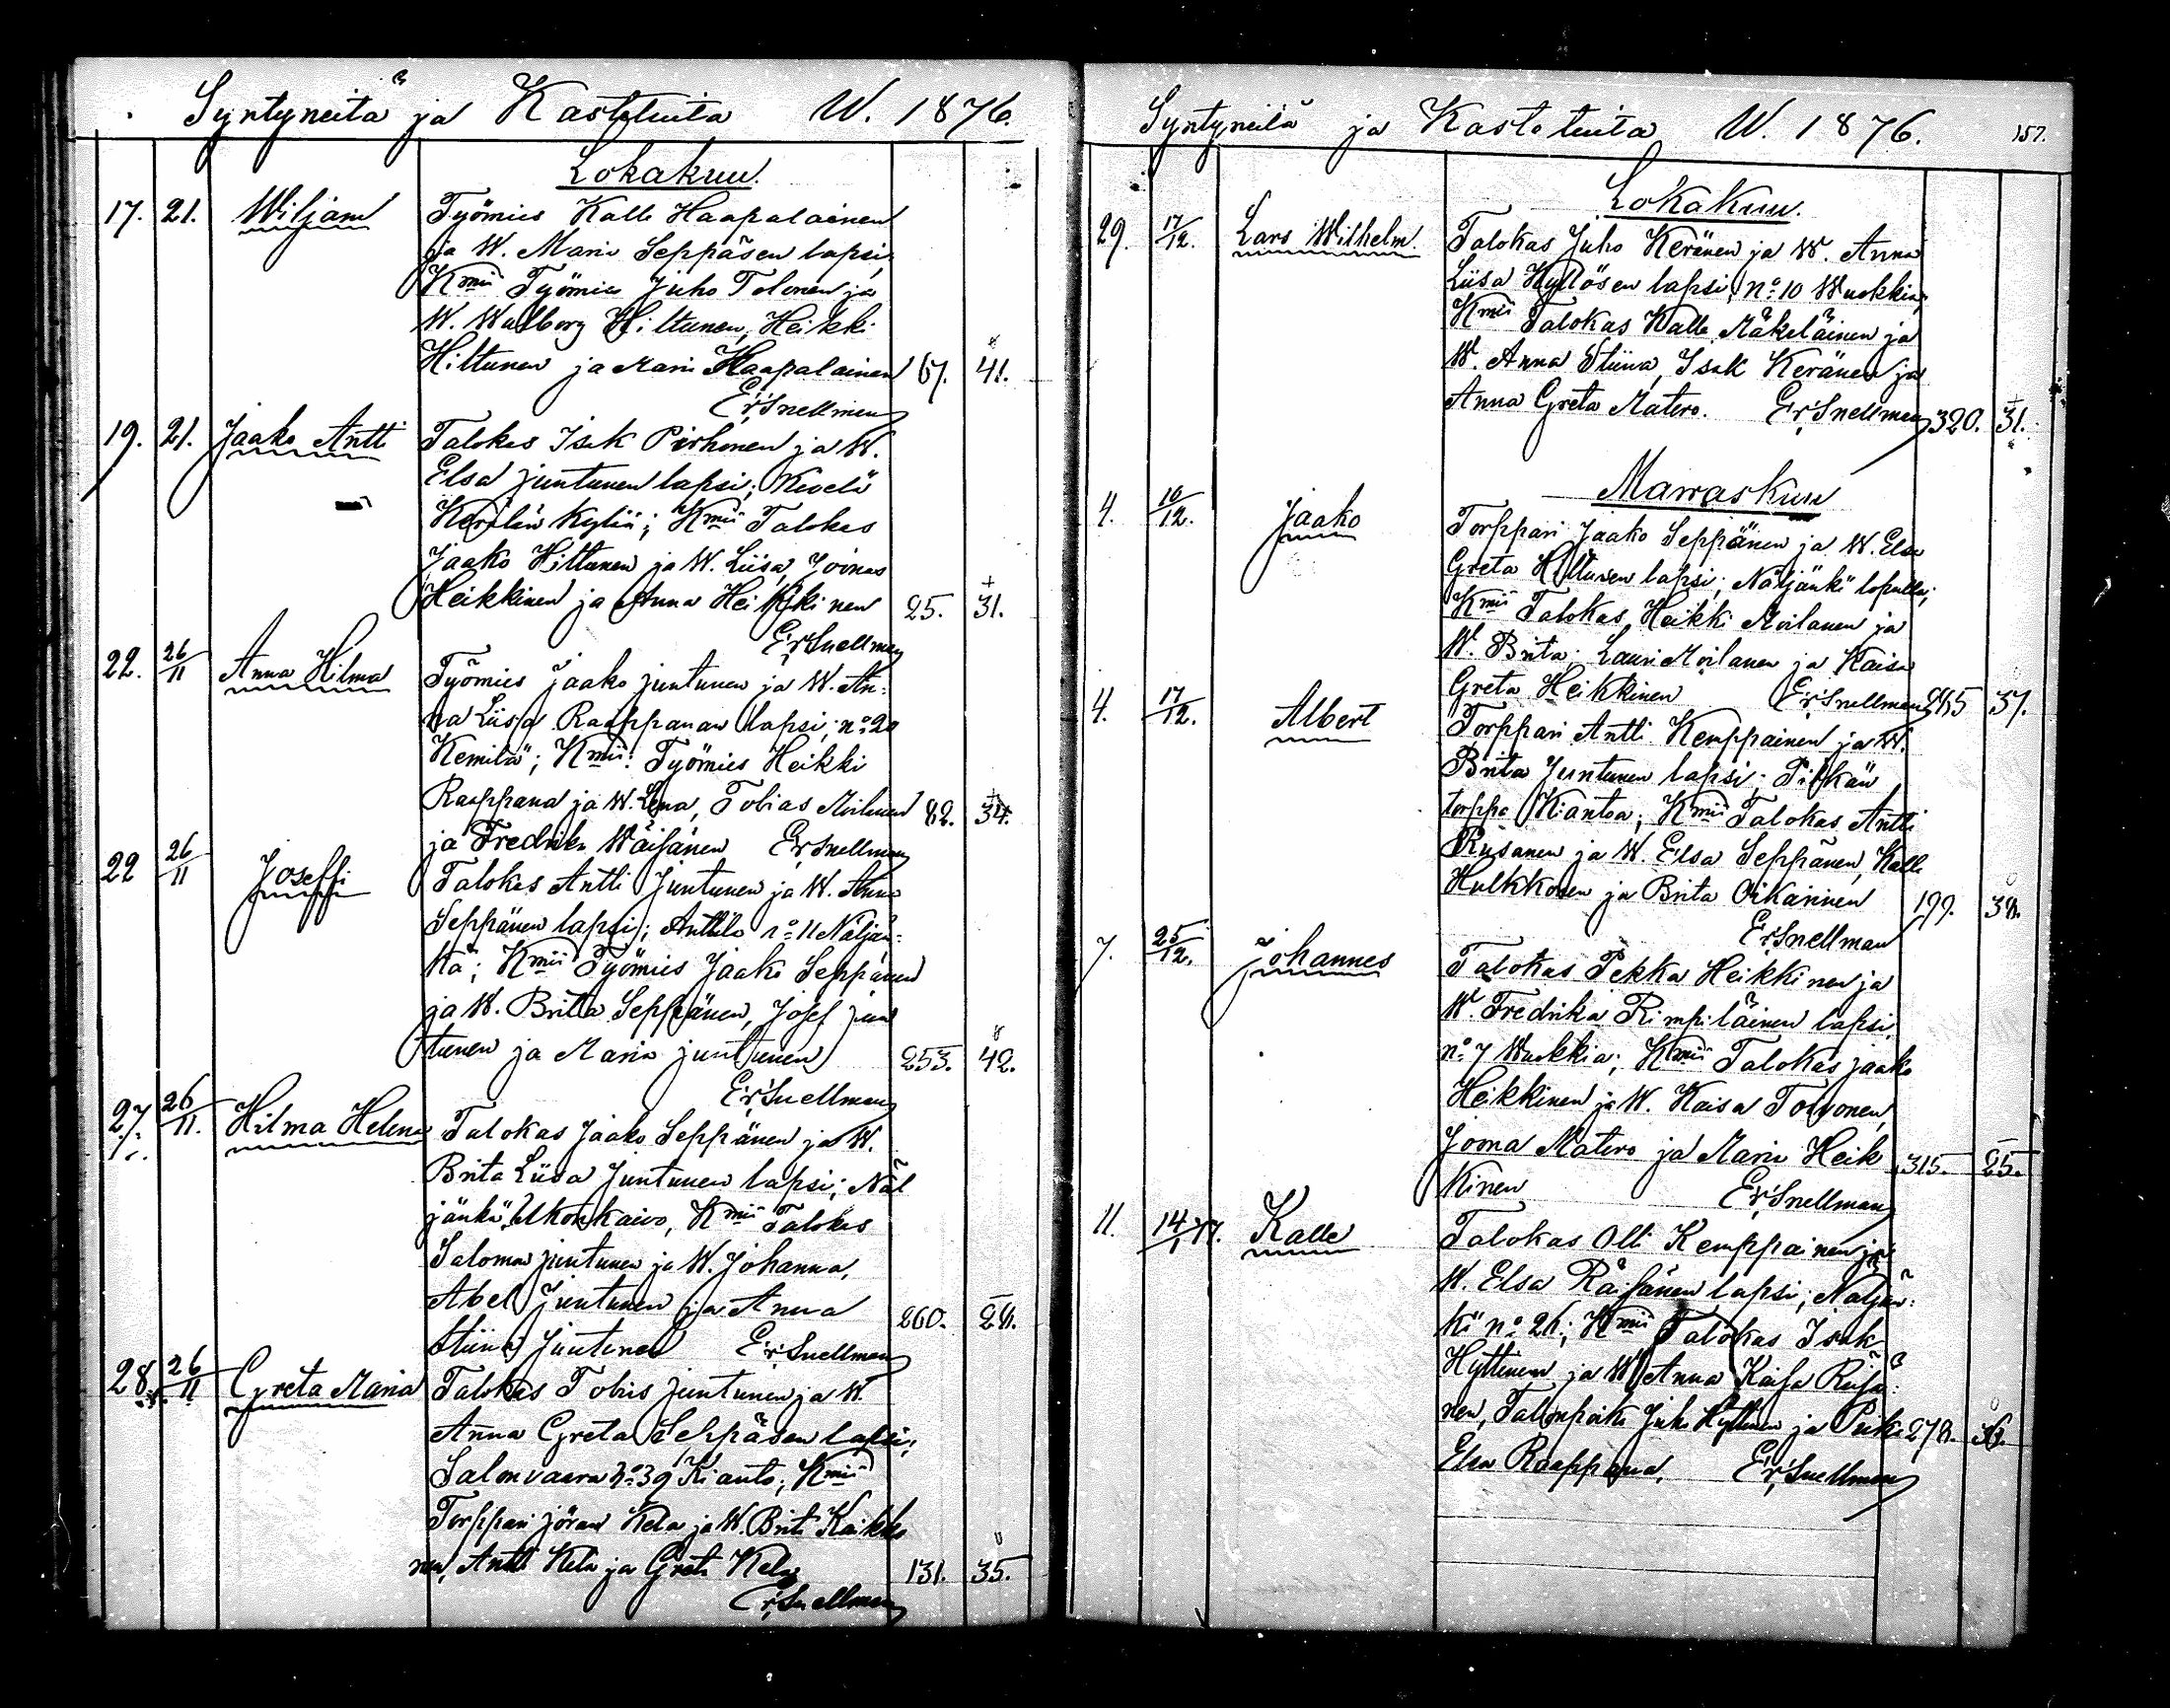 Syntyneitä ja Kastetuita W. 1876.
Lokakuu.
17. 21. Wiljam Työmies Kalle Haapalainen
ja W. Maria Seppäsen lapsi;
Kmii Työmies Juho Tolonen ja
W. Walborg Hiltunen, Heikki
Hiltunen ja Maria Haapalainen 67. 41.
Er. Snellman
19. 21. Jaako Antti Talokas Isak Pirhonen ja W.
Elsa Juntunen lapsi; Kivelä
Kerälän Kylää; Kmii Talokas
Jaako Hiltunen ja W. Liisa, Joonas
Heikkinen ja Anna Heikkinen 25. 31.
Er. Snellman
22. 26/11 Anna Hilma Työmies Jaako Juntunen ja W. An-
na Liisa Raappanan lapsi; no 20
Kemilä; Kmii: Työmies Heikki
Raappana ja W. Lena, Tobias Moilanen 82. 34.
ja Fredrika Wäisänen Er. Snellman
22 26/11 Joseffi Talokas Antti Juntunen ja W. Anna
Seppänen lapsi; Anttila no 11 Näljän-
kä; Kmii Työmies Jaako Seppänen
ja W. Brita Seppänen, Josef Jun
tunen ja Maria Juntunen 253. 42.
Er. Snellman
27. 26/11. Hilma Helena Talokas Jaako Seppänen ja W.
Brita Liisa Juntunen lapsi; Näl
jänkä, Ukonkaivo, Kmii Talokas
Saloman Juntunen ja W. Johanna,
Abel Juntunen ja Anna 260. 28.
Stiina Juntunen Er. Snellman
28. 26/11 Greta Maria Talokas Tobias Juntunen ja W.
Anna Greta Seppäsen lapsi;
Salonvaara no 39 Kianto; Kmii
Torppari Jöran Kela ja W. Brita Kaikko
nen, Antti Kela ja Greta Kela 131. 35.
Er. Snellman
Syntyneitä ja Kastetuita W. 1876. 157.
Lokakuu.
29. 17/12. Lars Wilhelm. Talokas Juho Keränen ja W. Anna
Liisa Kyllösen lapsi; no 10 Wuokkia;
Kmii Talokas Kalle Mäkeläinen ja
W. Anna Stiina, Isak Keränen ja
Anna Greta Matero. Er. Snellman 320. 31.
Marraskuu
4. 10/12. Jaako Torppari Jaako Seppänen ja W. Elsa
Greta Hiltunen lapsi; Näljänkä lopulla;
Kmii Talokas Heikki Moilanen ja
W. Brita; Lauri Moilanen ja Kaisa
Greta Heikkinen Er. Snellman 37.
4. 17/12. Albert Torppari Antti Kemppainen ja W.
Brita Juntunen lapsi; Pitkän
torppa Kianta; Kmii Talokas Antti
Riisanen ja W. Elsa Seppänen, Kalle
Hulkkonen ja Brita Oikarinen 199. 38.
Er. Snellman
7. 25/12. Johannes Talokas Pekka Heikkinen ja
W. Fredrika Rimpiläinen lapsi,
no 7 Wuokkia; Kmii Talokas Jaako
Heikkinen ja W. Kaisa Tolvonen,
Jooma Matero ja Maria Heik 315. 25.
kinen Er. Snellman
11. 14/1 77. Kalle Talokas Olli Kemppainen ja
W. Elsa Räisänen lapsi; Näljän-
kä no 26; Kmii Talokas Isak
Hyttinen ja W. Anna Kaisa Riisä-
nen, Talonpoika Juho Hyttinen ja Piika 278. 36.
Elsa Raappana. Er. Snellman